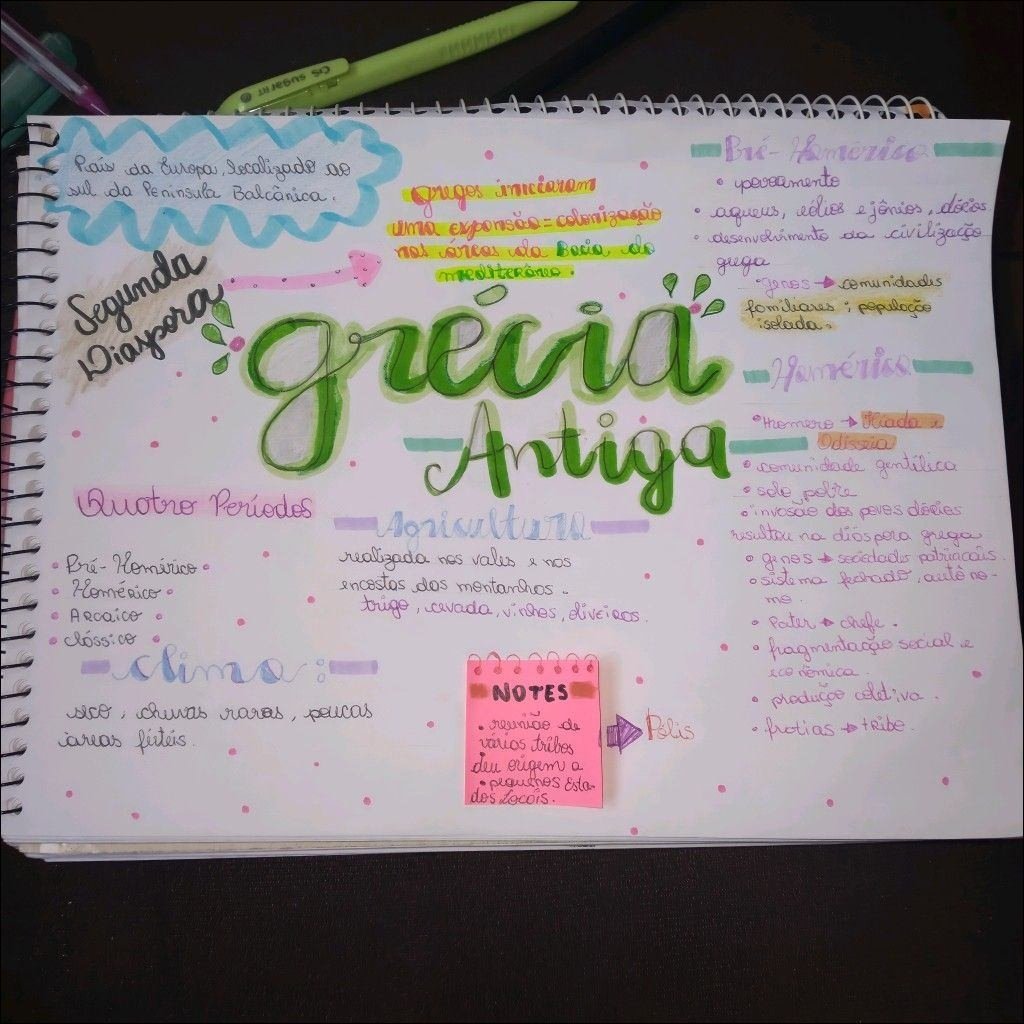 CIS sugarit
País da Europa, localizado ao
sul da Península Balcânica.
Segunda
Diáspora
gregos iniciaram
uma expansão = colonização
nas áreas da Bacia do
mediterâneo.
grécia
Antiga
Quatro Períodos
• Pré-Homérico •
• Homérico •
• Arcaico •
• clássico •
clima:
seco, chuvas raras, poucas
áreas férteis.
Agricultura
realizada nos vales e nas
encostas das montanhas.
trigo, cevada, vinhas, oliveiras.
NOTES
• reunião de
várias tribos
deu origem a
• pequenos Esta-
dos Locais.
Pólis
Pré-Homérico
• povoamento
• aqueus, eólios e jônios, dórios.
• desenvolvimento da civilização
grega
• genos → comunidades
familiares; população
isolada.
Homérico
• Homero → Ilíada e
Odisséia
• comunidade gentílica
• solo pobre
• invasão dos povos dórios
resultou na diáspora grega
• genos → sociedades patriarcais.
• sistema fechado, autôno-
mo.
• Pater → chefe.
• fragmentação social e
econômica.
• produção coletiva.
• fratias → tribo.